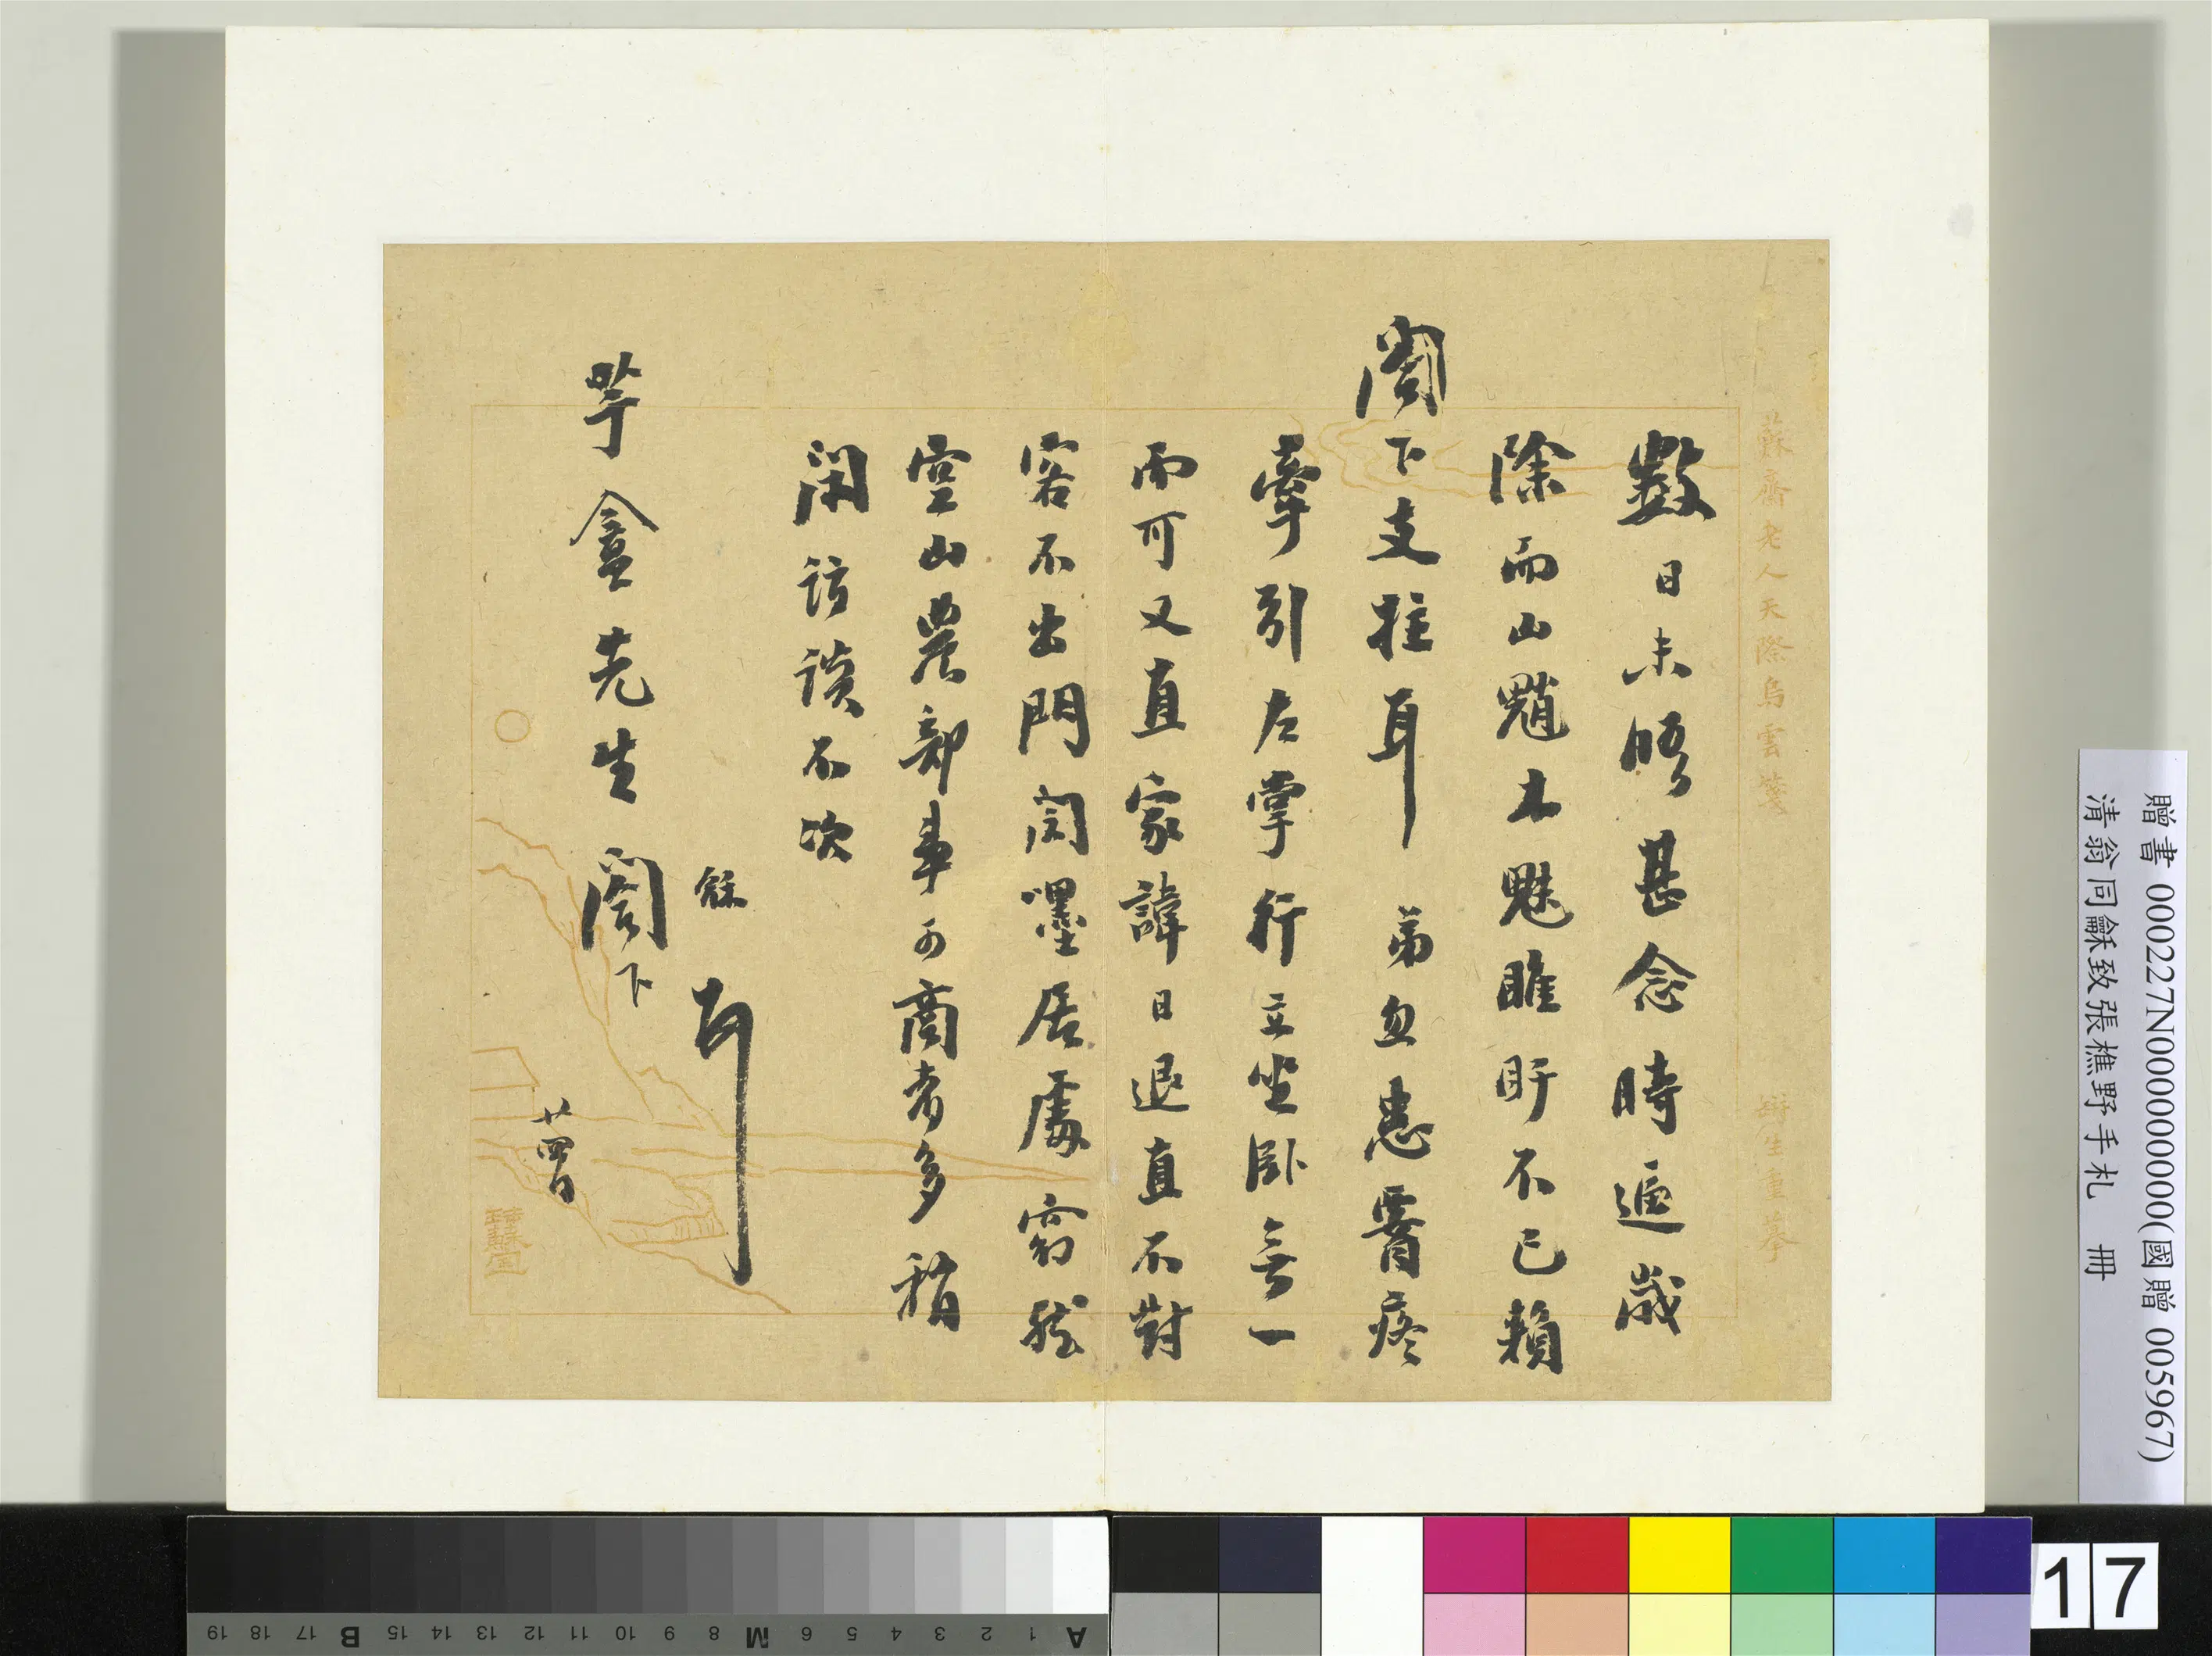 贈書 000227N000000000(國贈 005967)
清翁同龢致張樵野手札 冊
蘇齋老人天際烏雲箋 瓶生重摹
數日未晤甚念時逼歲
除而山魈木魅睢盱不已賴
閣下支拄耳弟忽患膂疼
牽引左掌行立坐臥無一
而可又直家諱日退直不對
客不出門閔嘿居處窈然
空山農部事可商者多稍
閑訪談不次
龢
芋盦先生閣下
廿四日
A 1 2 3 4 5 6 7 8 M 9 10 11 12 13 14 15 B 17 18 19
17